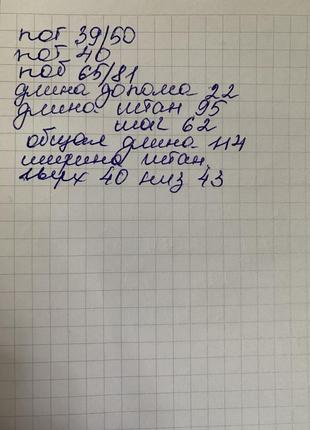 пот 39/50
пот 40
поб 65/81
длина допома 22
длина штан 95
шаг 62
общая длина 114
ширина штан.
вверх 40 низ 43